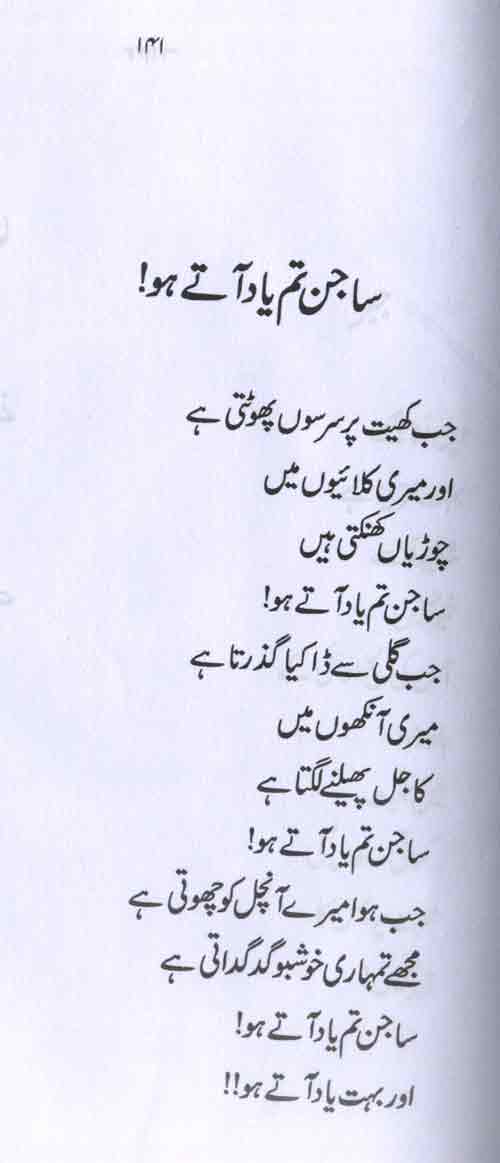 ۱۴۱
ساجن تم یاد آتے ہو!
جب کھیت پر سرسوں پھوٹتی ہے
اور میری کلائیوں میں
چوڑیاں کھنکتی ہیں
ساجن تم یاد آتے ہو!
جب گلی سے ڈاکیا گذرتا ہے
میری آنکھوں میں
کاجل پھیلنے لگتا ہے
ساجن تم یاد آتے ہو!
جب ہوا میرے آنچل کو چھوتی ہے
مجھے تمہاری خوشبو گدگداتی ہے
ساجن تم یاد آتے ہو!
اور بہت یاد آتے ہو!!